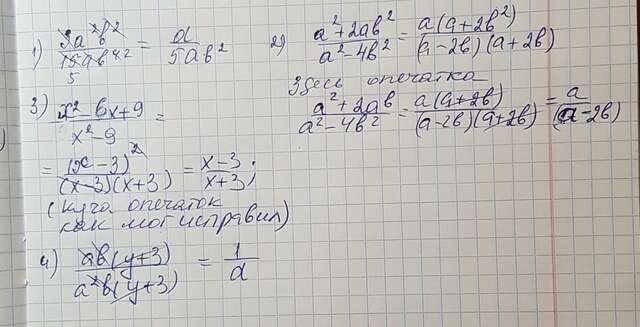 1) 3a²b² / 15ab⁴ = a / 5ab²
2) a²+2ab² / a²-4b² = a(a+2b²) / (a-2b)(a+2b)
Здесь опечатка
a²+2ab / a²-4b² = a(a+2b) / (a-2b)(a+2b) = a / (a-2b)
3) x²-6x+9 / x²-9 =
= (x-3)² / (x-3)(x+3) = x-3 / x+3;
(куча опечаток
как мог исправил)
4) ab(y+3) / a²b(y+3) = 1 / a